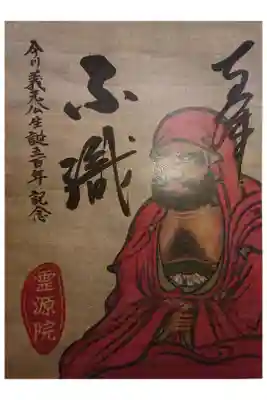 不識
今川義元公生誕五百年記念
霊源院